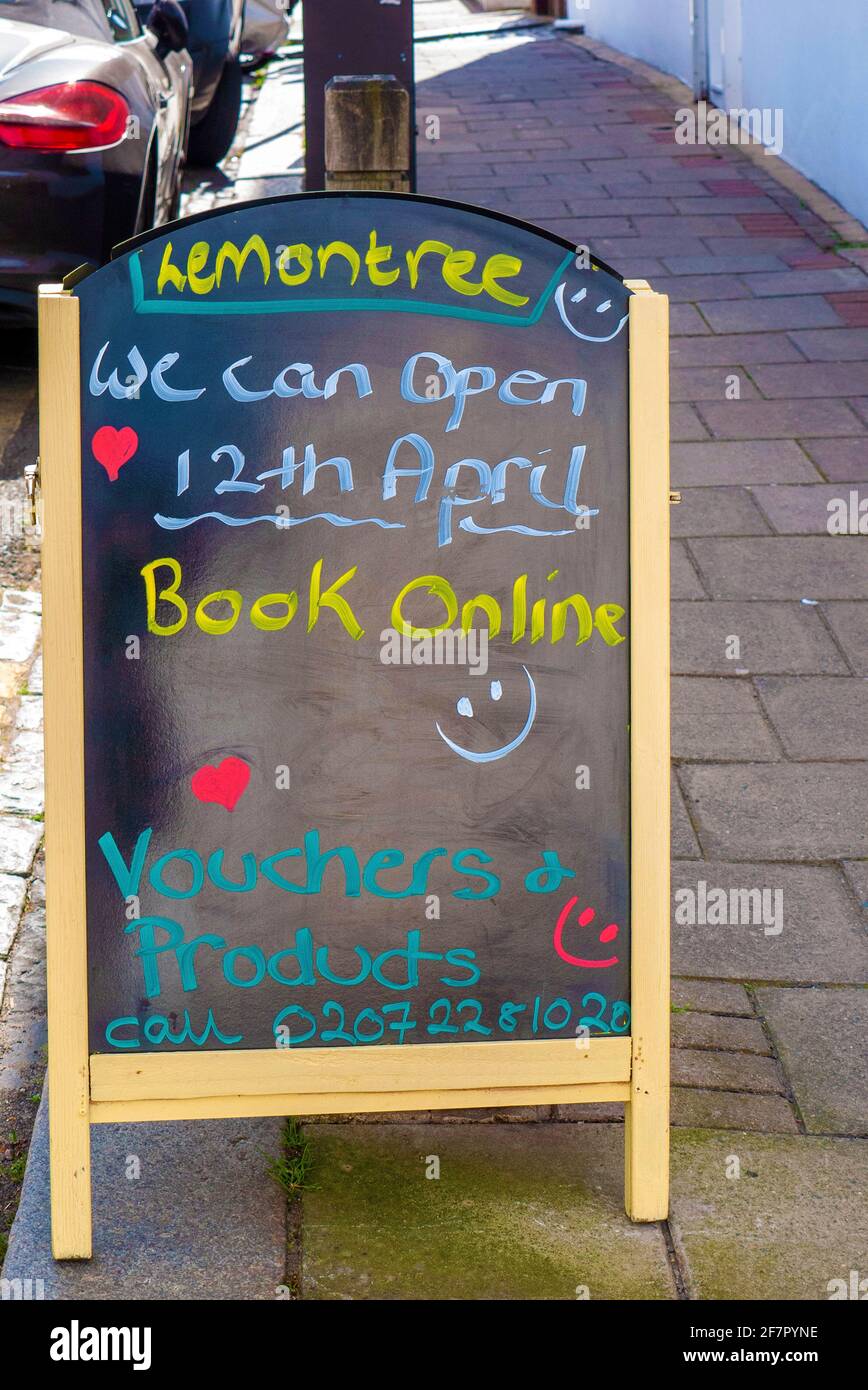 Lemontree
We can Open
12th April
Book Online
Vouchers &
Products
call 02072281020
a
alamy
a
alamy
Image ID: 2F7PYNE
www.alamy.com